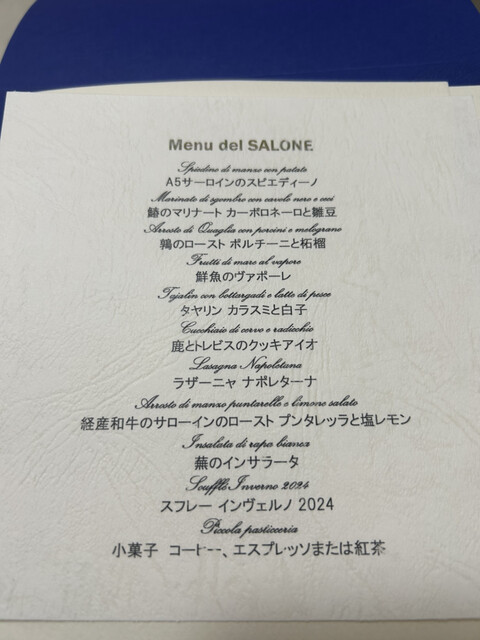 Menu del SALONE
Spiedino di manzo con patate
A5サーロインのスピエディーノ
Marinato di sgombro con cavolo nero e ceci
鰆のマリナート カーボロネーロと雛豆
Arrosto di Quaglia con porcini e melograno
鶉のロースト ポルチーニと柘榴
Frutti di mare al vapore
鮮魚のヴァポーレ
Tajalin con bottargadi e latte di pesce
タヤリン カラスミと白子
Cucchiaio di cervo e radicchio
鹿とトレビスのクッキアイオ
Lasagna Napoletana
ラザーニャ ナポレターナ
Arrosto di manzo puntarelle e limone salato
経産和牛のサローインのロースト プンタレッラと塩レモン
Insalata di rapa bianca
蕪のインサラータ
Soufflè Inverno 2024
スフレー インヴェルノ 2024
Piccola pasticceria
小菓子 コーヒー、エスプレッソまたは紅茶